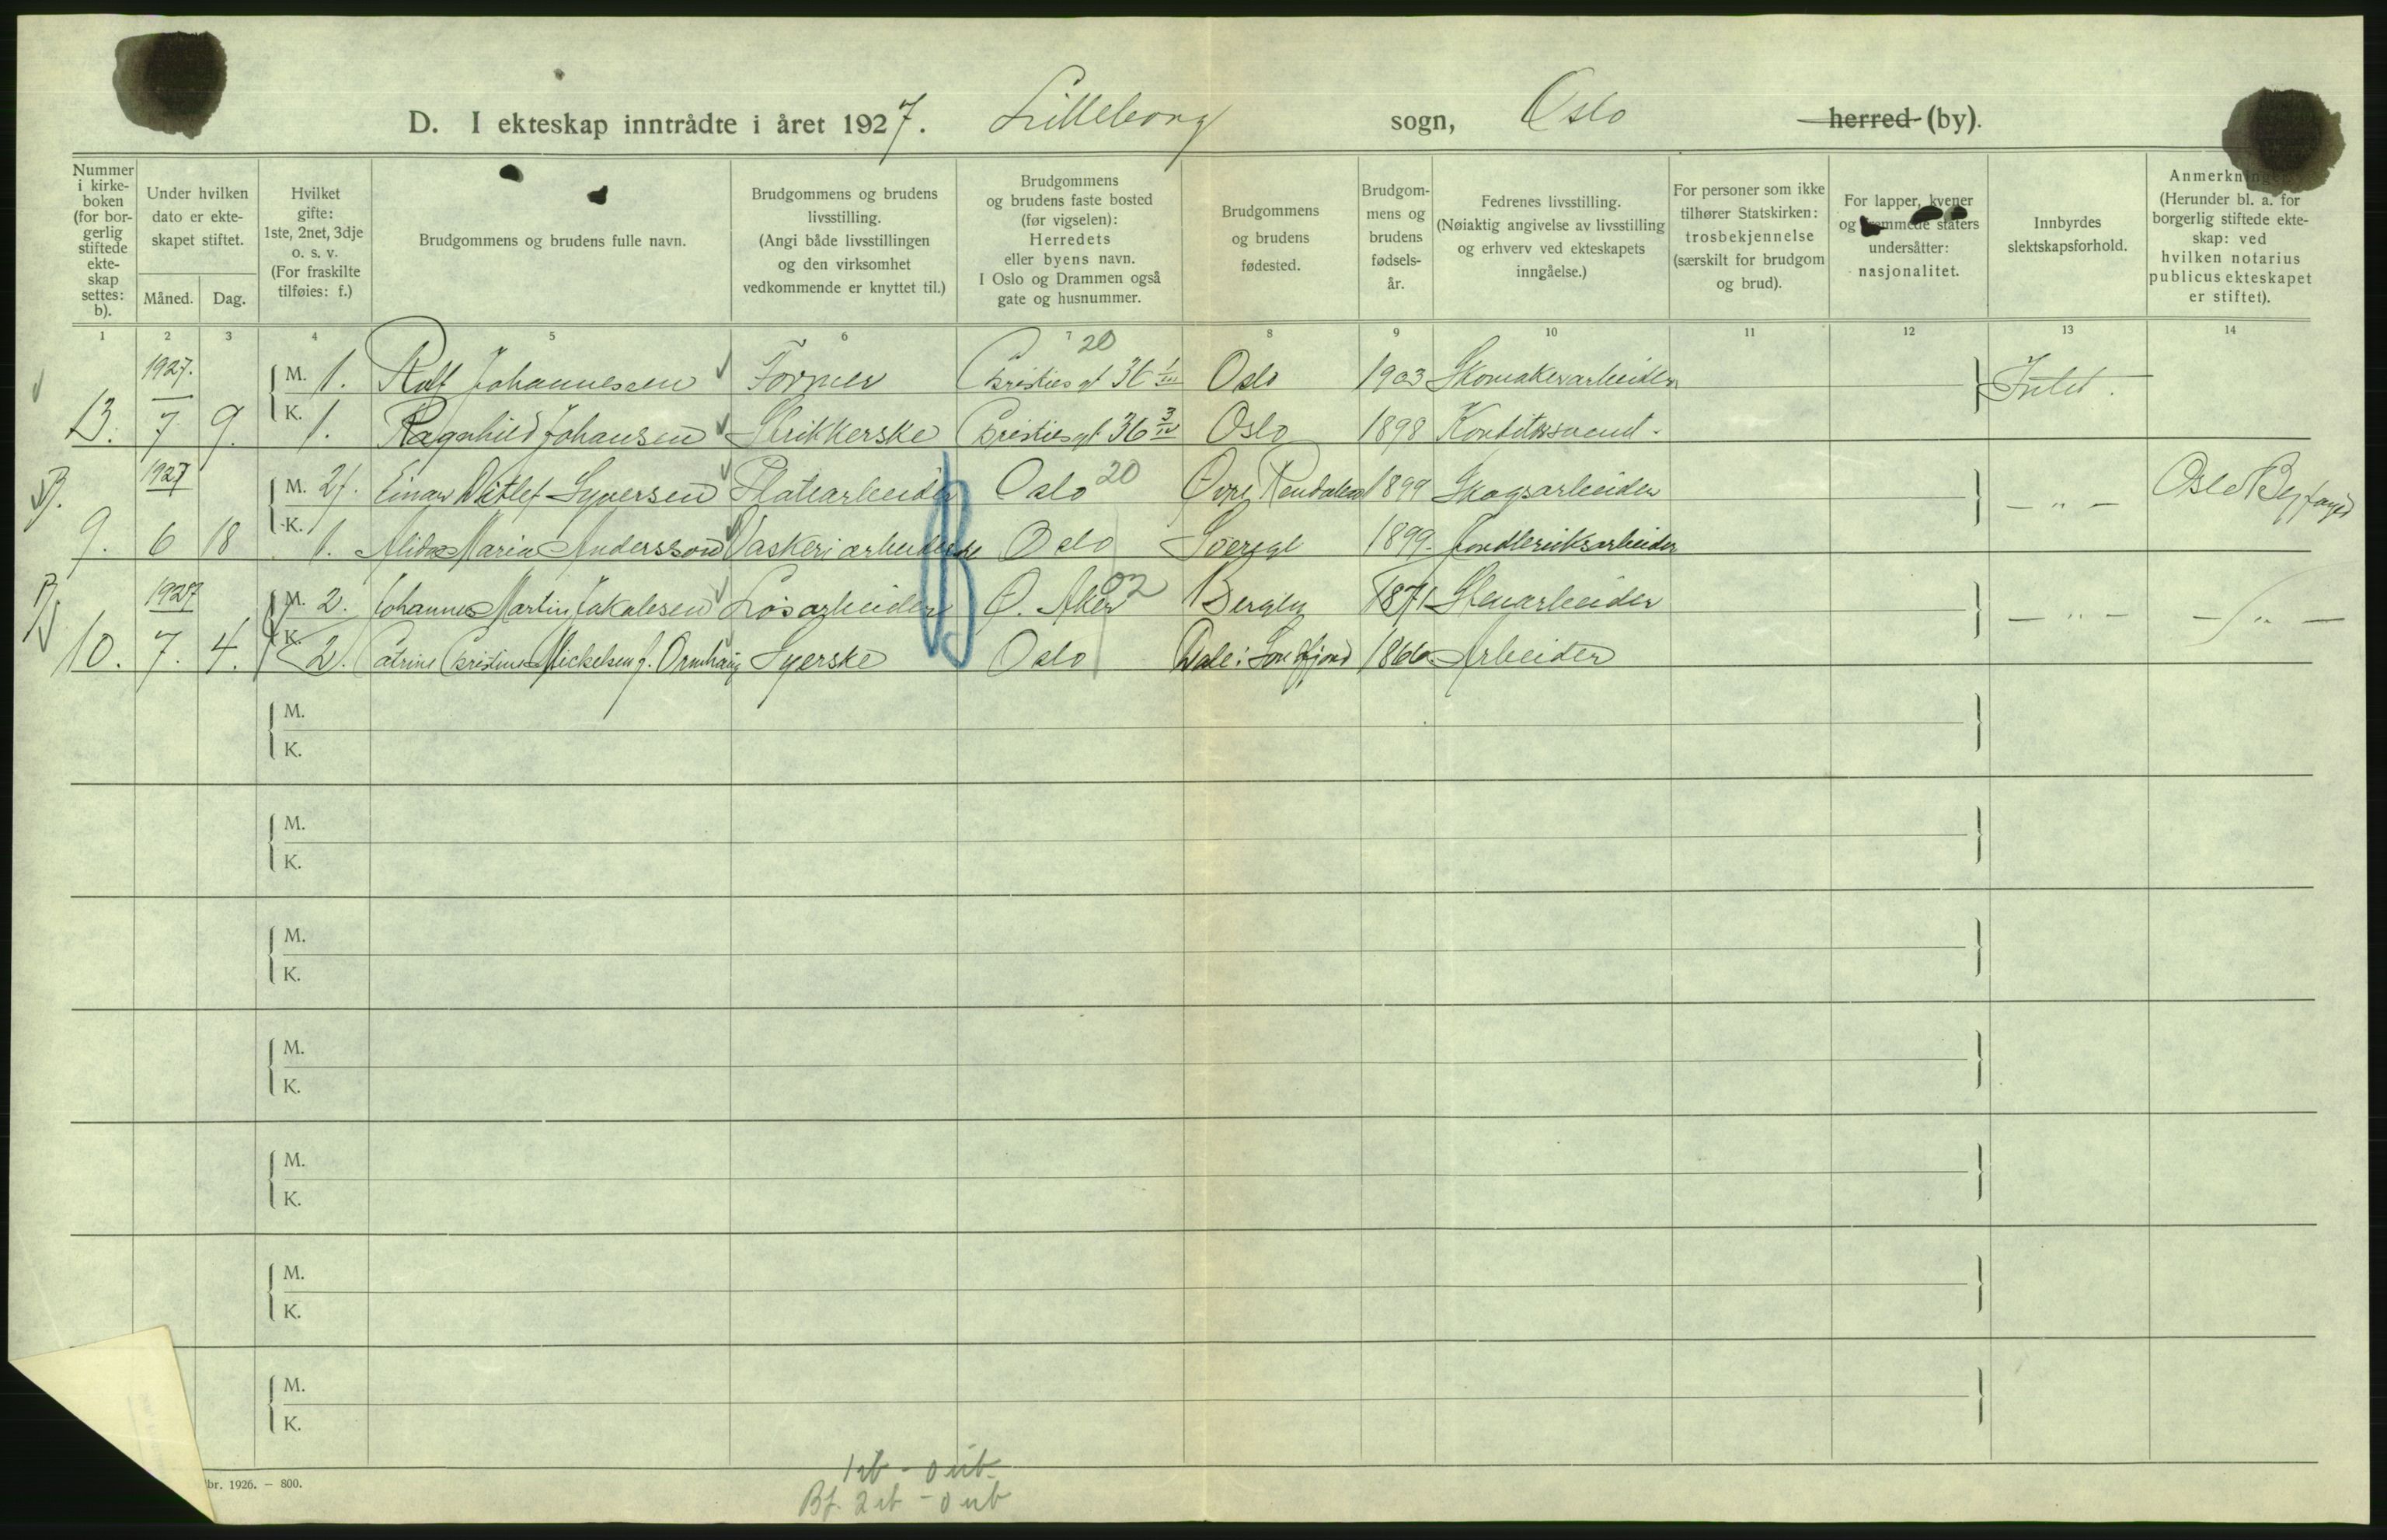 D. I ekteskap inntrådte i året 1927. Lilleborg sogn, Oslo herred (by).
Nummer i kirke-boken (for bor-gerlig stiftede ekte-skap settes: b).
Under hvilken dato er ekte-skapet stiftet.
Måned. Dag.
Hvilket gifte: 1ste, 2net, 3dje o. s. v. (For fraskilte tilføies: f.)
Brudgommens og brudens fulle navn.
Brudgommens og brudens livsstilling. (Angi både livsstillingen og den virksomhet vedkommende er knyttet til.)
Brudgommens og brudens faste bosted (før vigselen): Herredets eller byens navn. I Oslo og Drammen også gate og husnummer.
Brudgommens og brudens fødested.
Brudgom-mens og brudens fødsels-år.
Fedrenes livsstilling. (Nøiaktig angivelse av livsstilling og erhverv ved ekteskapets inngåelse.)
For personer som ikke tilhører Statskirken: trosbekjennelse (særskilt for brudgom og brud).
For lapper, kvener og fremmede staters undersåtter: nasjonalitet.
Innbyrdes slektskapsforhold.
Anmerkninger. (Herunder bl. a. for borgerlig stiftede ekte-skap: ved hvilken notarius publicus ekteskapet er stiftet).
1 2 3 4 5 6 7 8 9 10 11 12 13 14
20
1927. M. 1. Rolf Johannessen Former Christies gt 36 Oslo 1903 Skomakerarbeider Intet.
13. 7 9. K. 1. Ragnhild Johansen Strikkerske Christies gt 36 Oslo 1898 Konditorsvend.
B. 1927 M. 2f. Einar Ditlef Syversen Platearbeider Oslo 20 Øvre Rendalen 1899 Skogsarbeider — " — Oslo Byfoged
9. 6 18 K. 1. Alida Maria Andersson Vaskeriarbeiderske Oslo 1899. Jordbruksarbeider
B. 1927 M. 2. Johannes Martin Jakobsen Løsarbeider Ø. Aker 02 1871 Stenarbeider — " — — " —
10. 7. 4. K. 2. Catrine Christine Mickelsen f. Syerske Oslo Dale i Søndfjord 1866. Arbeider
B
M.
K.
M.
K.
M.
K.
M.
K.
M.
K.
M.
K.
M.
K.
br. 1926. — 800.
1 ub - 0 ub.
Bf. 2 ub - 0 ub